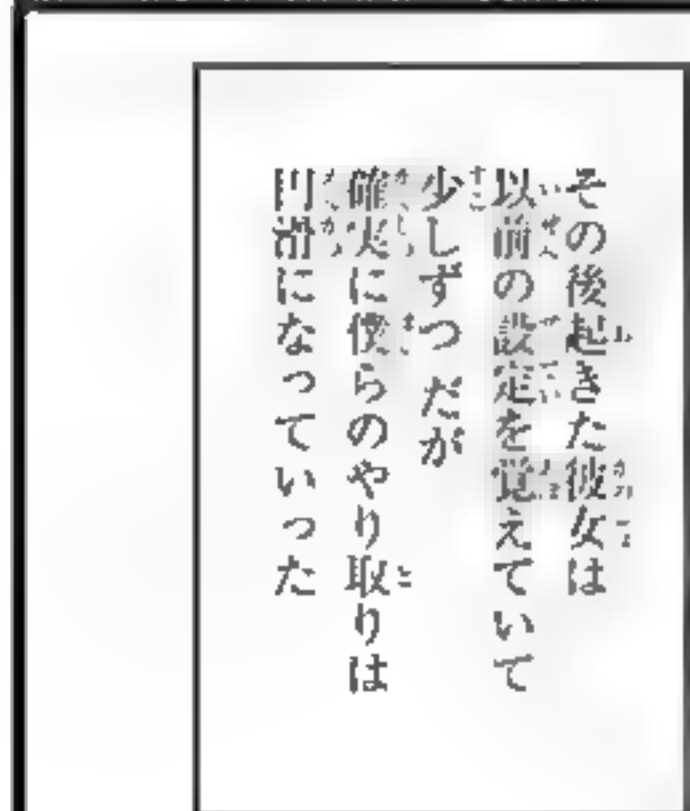 その後起きた彼女は
以前の設定を覚えていて
少しずつだが
確実に僕らのやり取りは
円滑になっていった